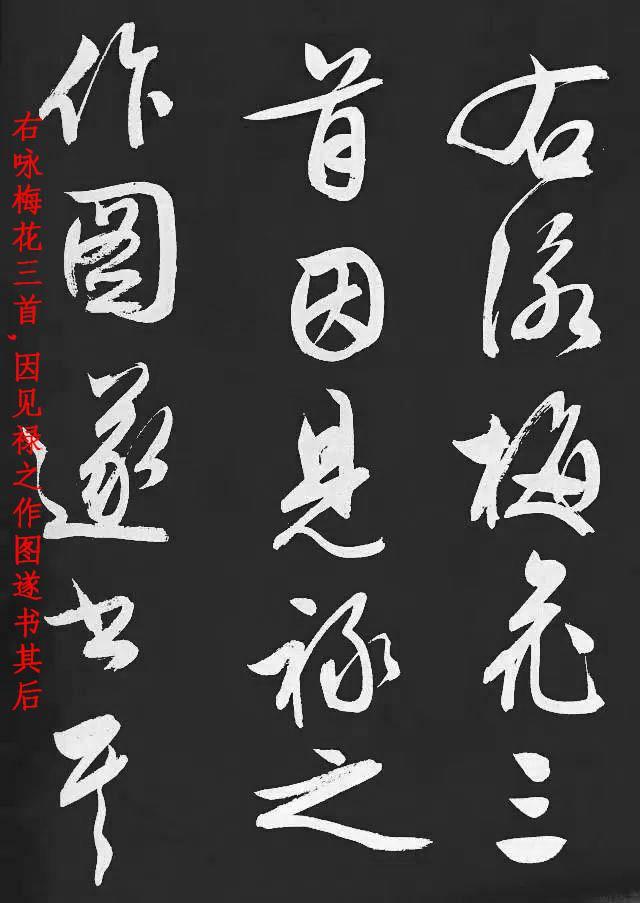 右詠梅花三
首因見禄之
作圖遂書其
右咏梅花三首,因见禄之作图遂书其后